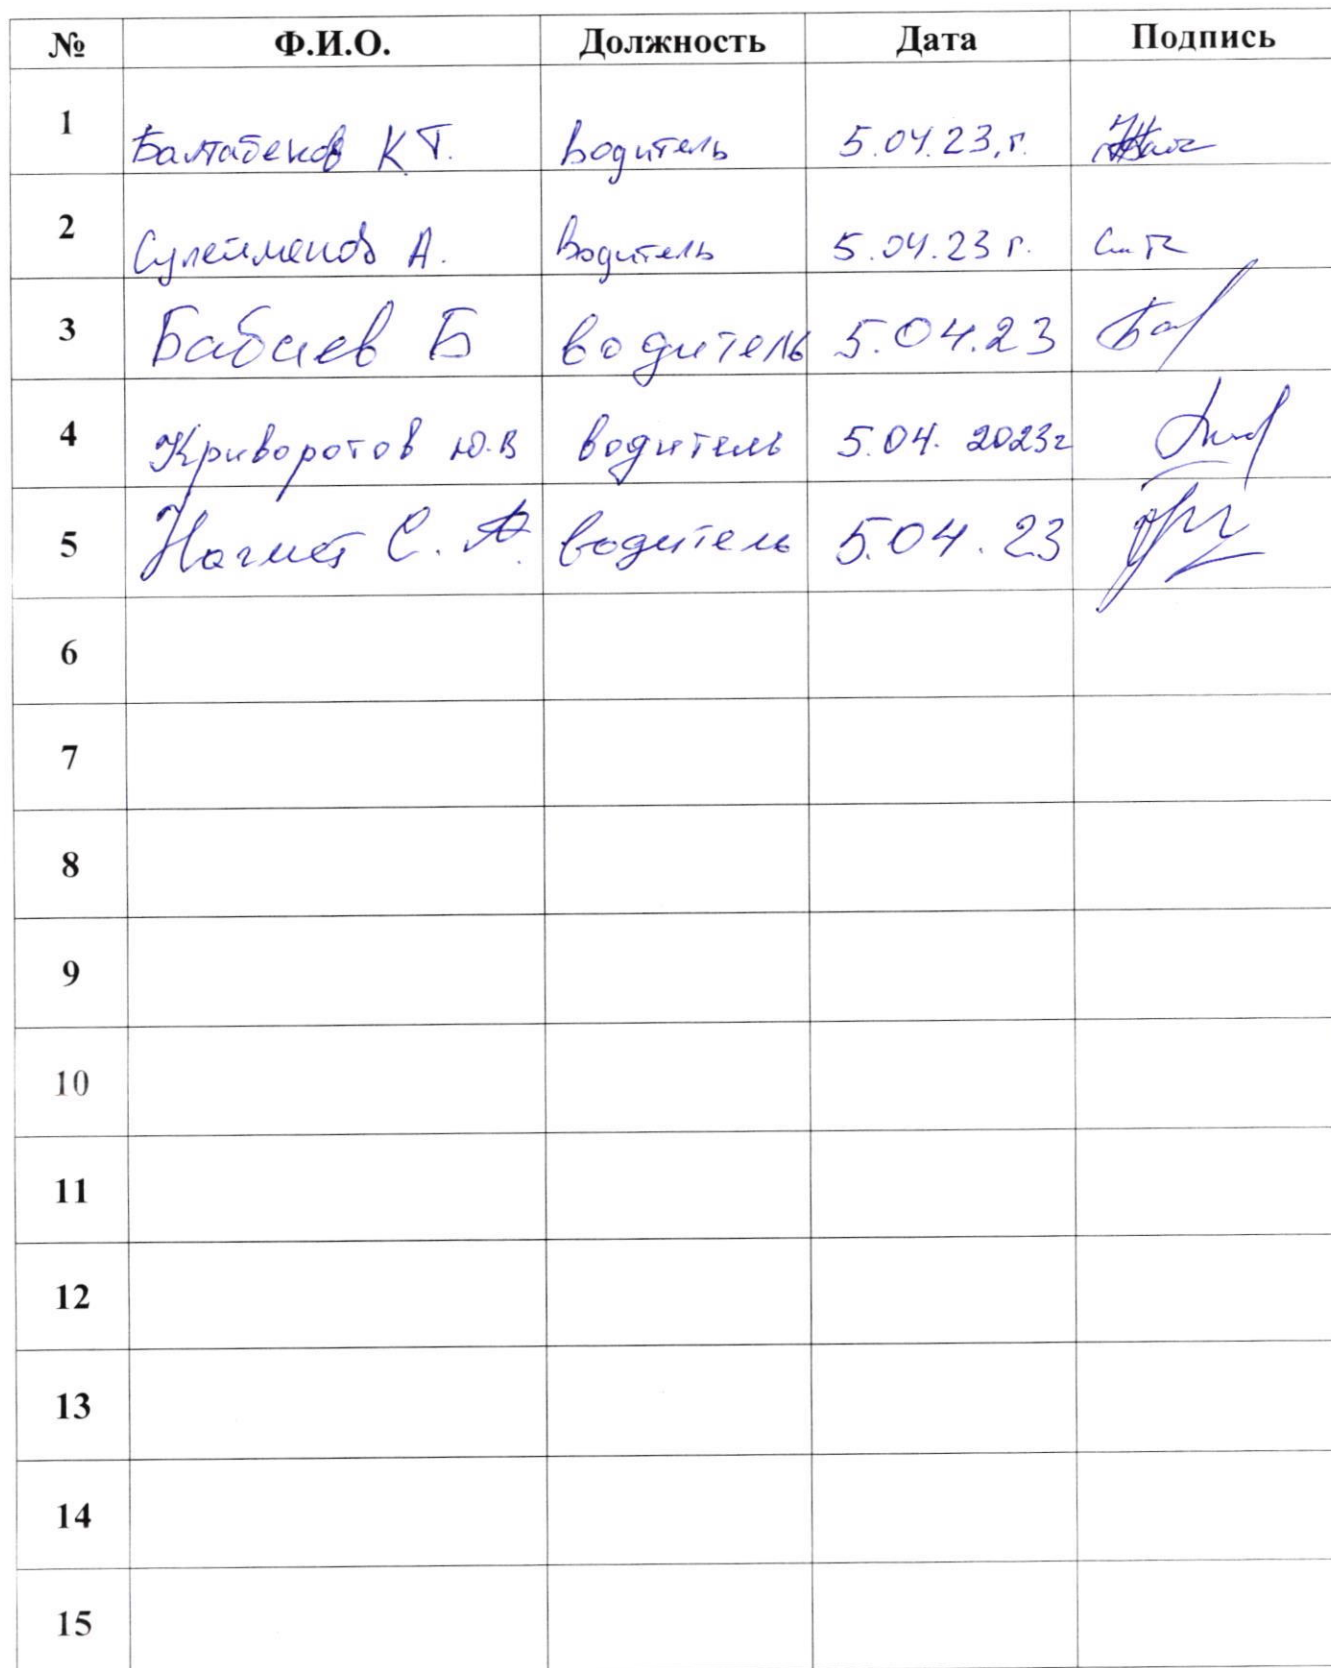 № Ф.И.О. Должность Дата Подпись
1 Балтабеков К.Т. водитель 5.04.23,г.
2 Сулейменов А. водитель 5.04.23 г.
3 Бабаев Б водитель 5.04.23
4 Криворотов Ю.В водитель 5.04.2023г
5 С. А. водитель 5.04.23
6
7
8
9
10
11
12
13
14
15